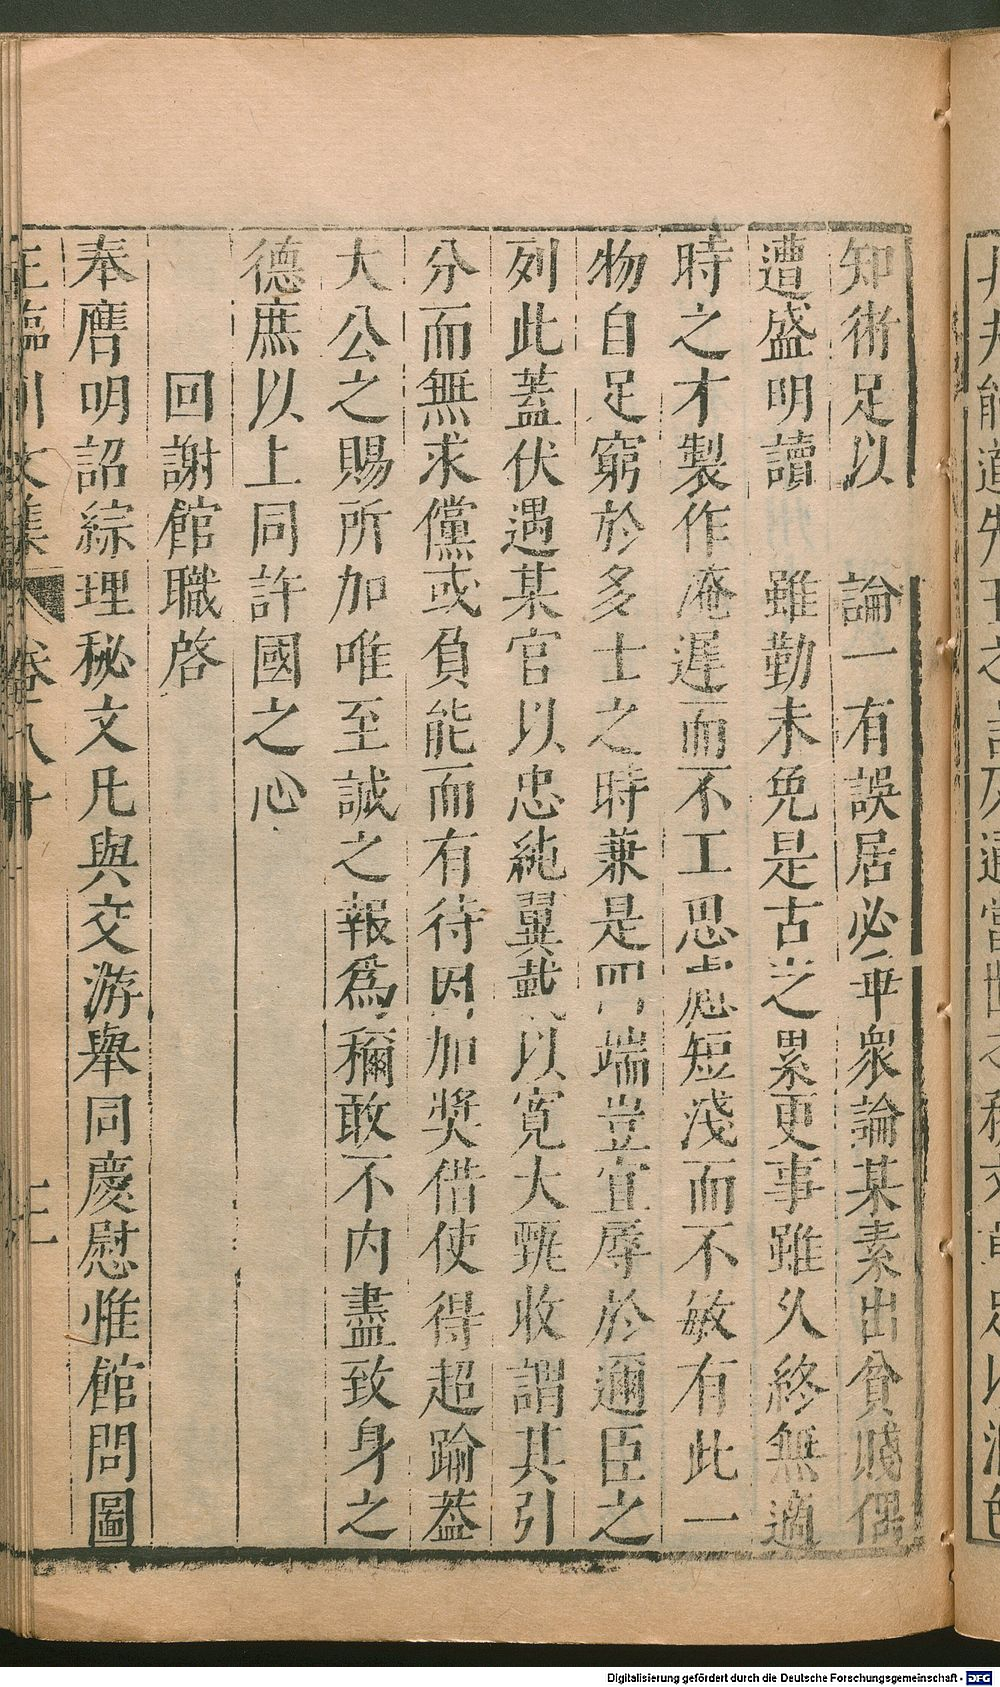 知術足以 論一有誤居必乖衆論某素出貧賤偶
遭盛明讀 雖勤未免是古之累更事雖久終無適
時之才製作淹遲而不工思慮短淺而不敏有此一
物自足窮於多士之時兼是四端豈宜辱於邇臣之
列此蓋伏遇某官以忠純翼戴以寬大甄收謂其引
分而無求儻或負能而有待因加奬借使得超踰蓋
大公之賜所加唯至誠之報爲稱敢不内盡致身之
德庶以上同許國之心
回謝館職啓
奉膺明詔綜理秘文凡與交游舉同慶慰惟館問圖
王臨川文集 卷八十 三
Digitalisierung gefördert durch die Deutsche Forschungsgemeinschaft - DFG